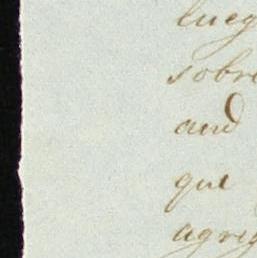 lueg
sobre
aud
que
agreg